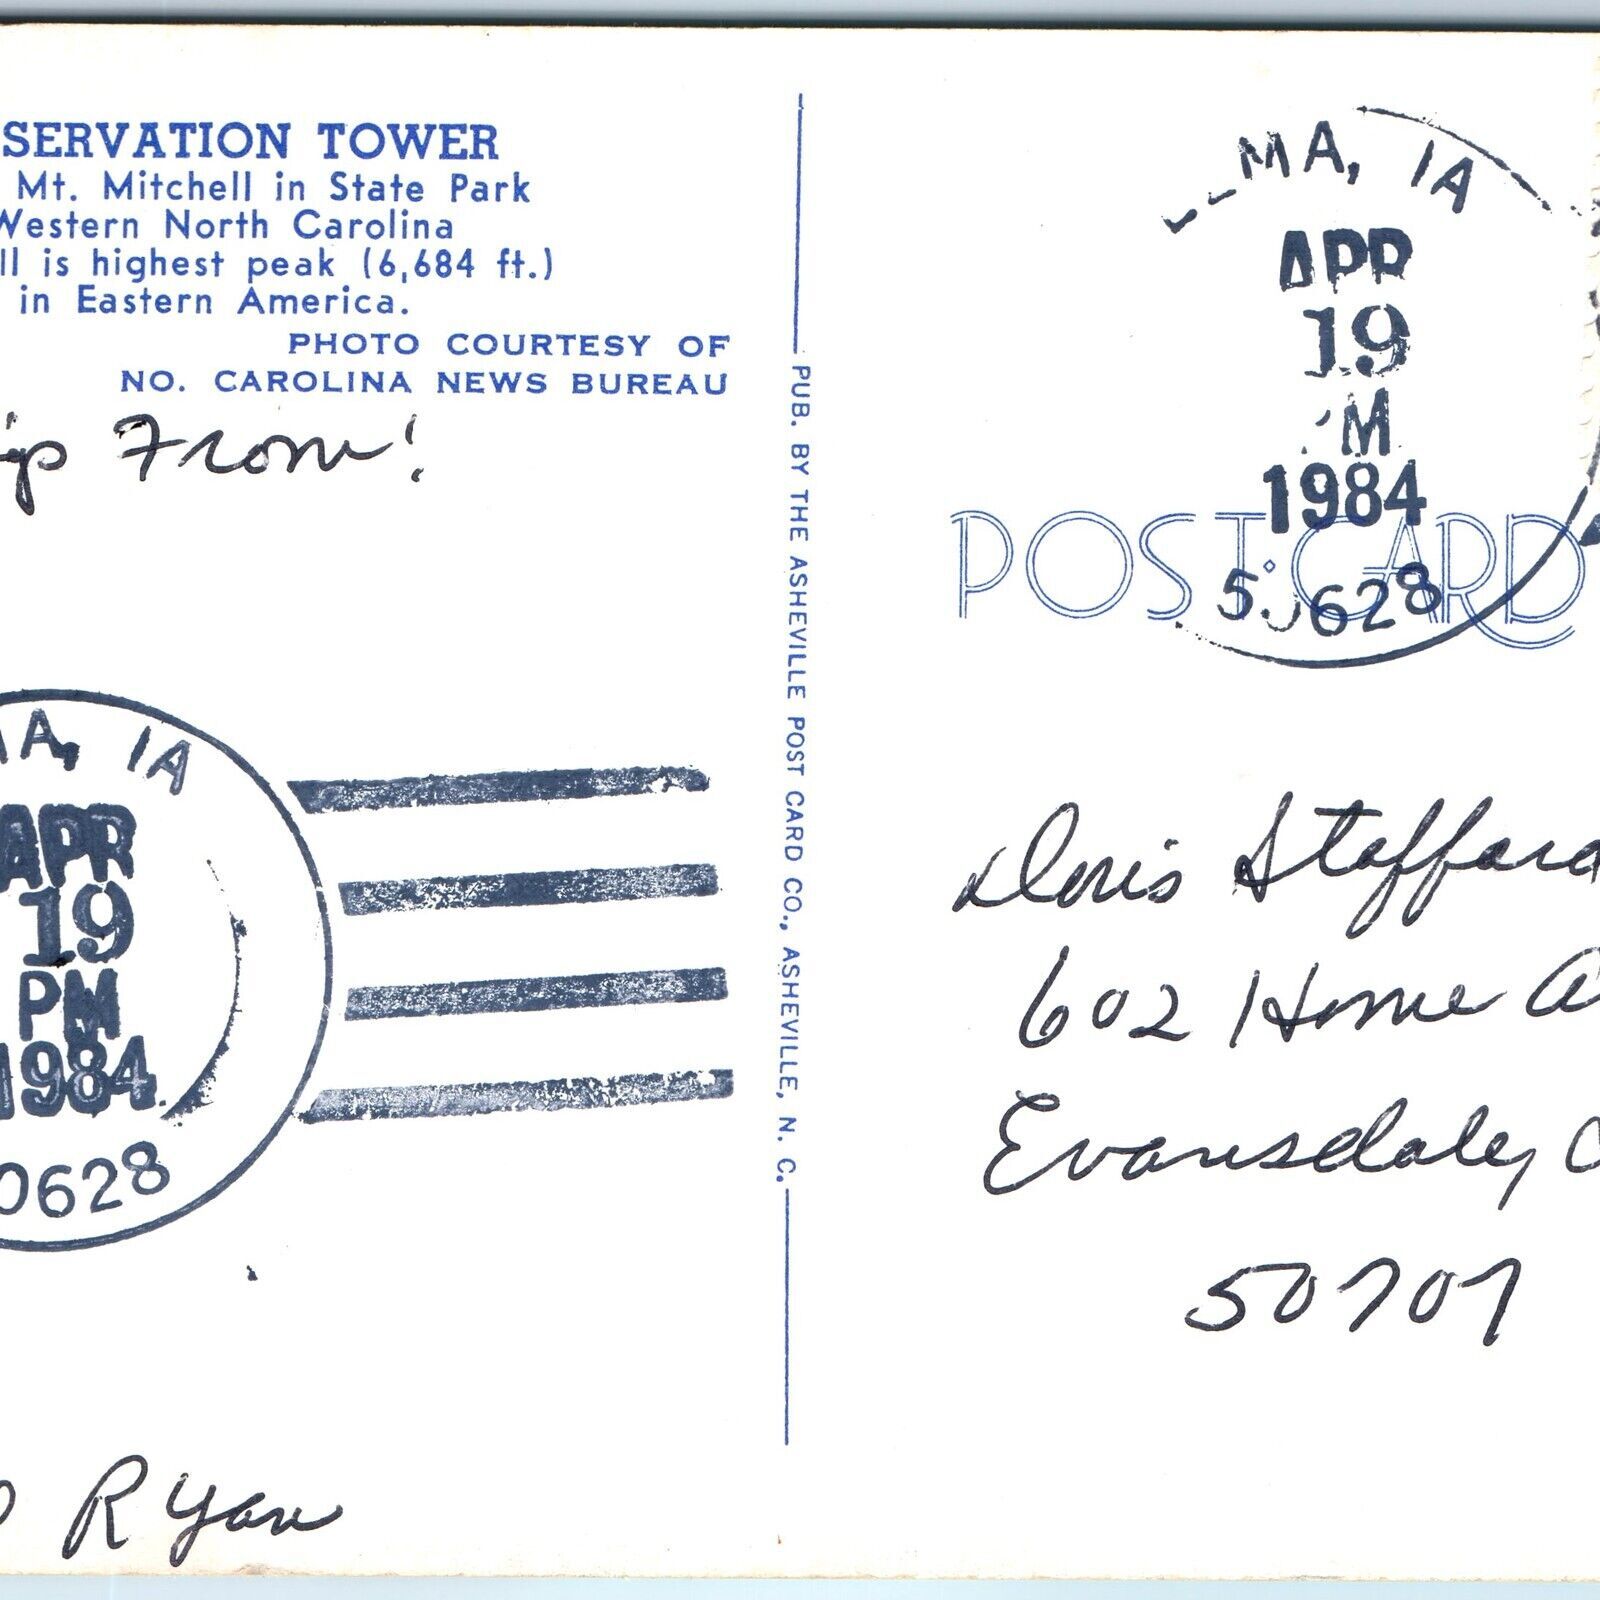 SERVATION TOWER
Mt. Mitchell in State Park
Western North Carolina
ll is highest peak (6,684 ft.)
in Eastern America.
PHOTO COURTESY OF
NO. CAROLINA NEWS BUREAU
ip From!
MA, IA
APR
19
PM
1984
0628
Ryan
PUB. BY THE ASHEVILLE POST CARD CO., ASHEVILLE, N. C.
MA, IA
APR
19
M
1984
POST CARD
50628
Doris Stafford
602 Home A
Evansdale,
50707